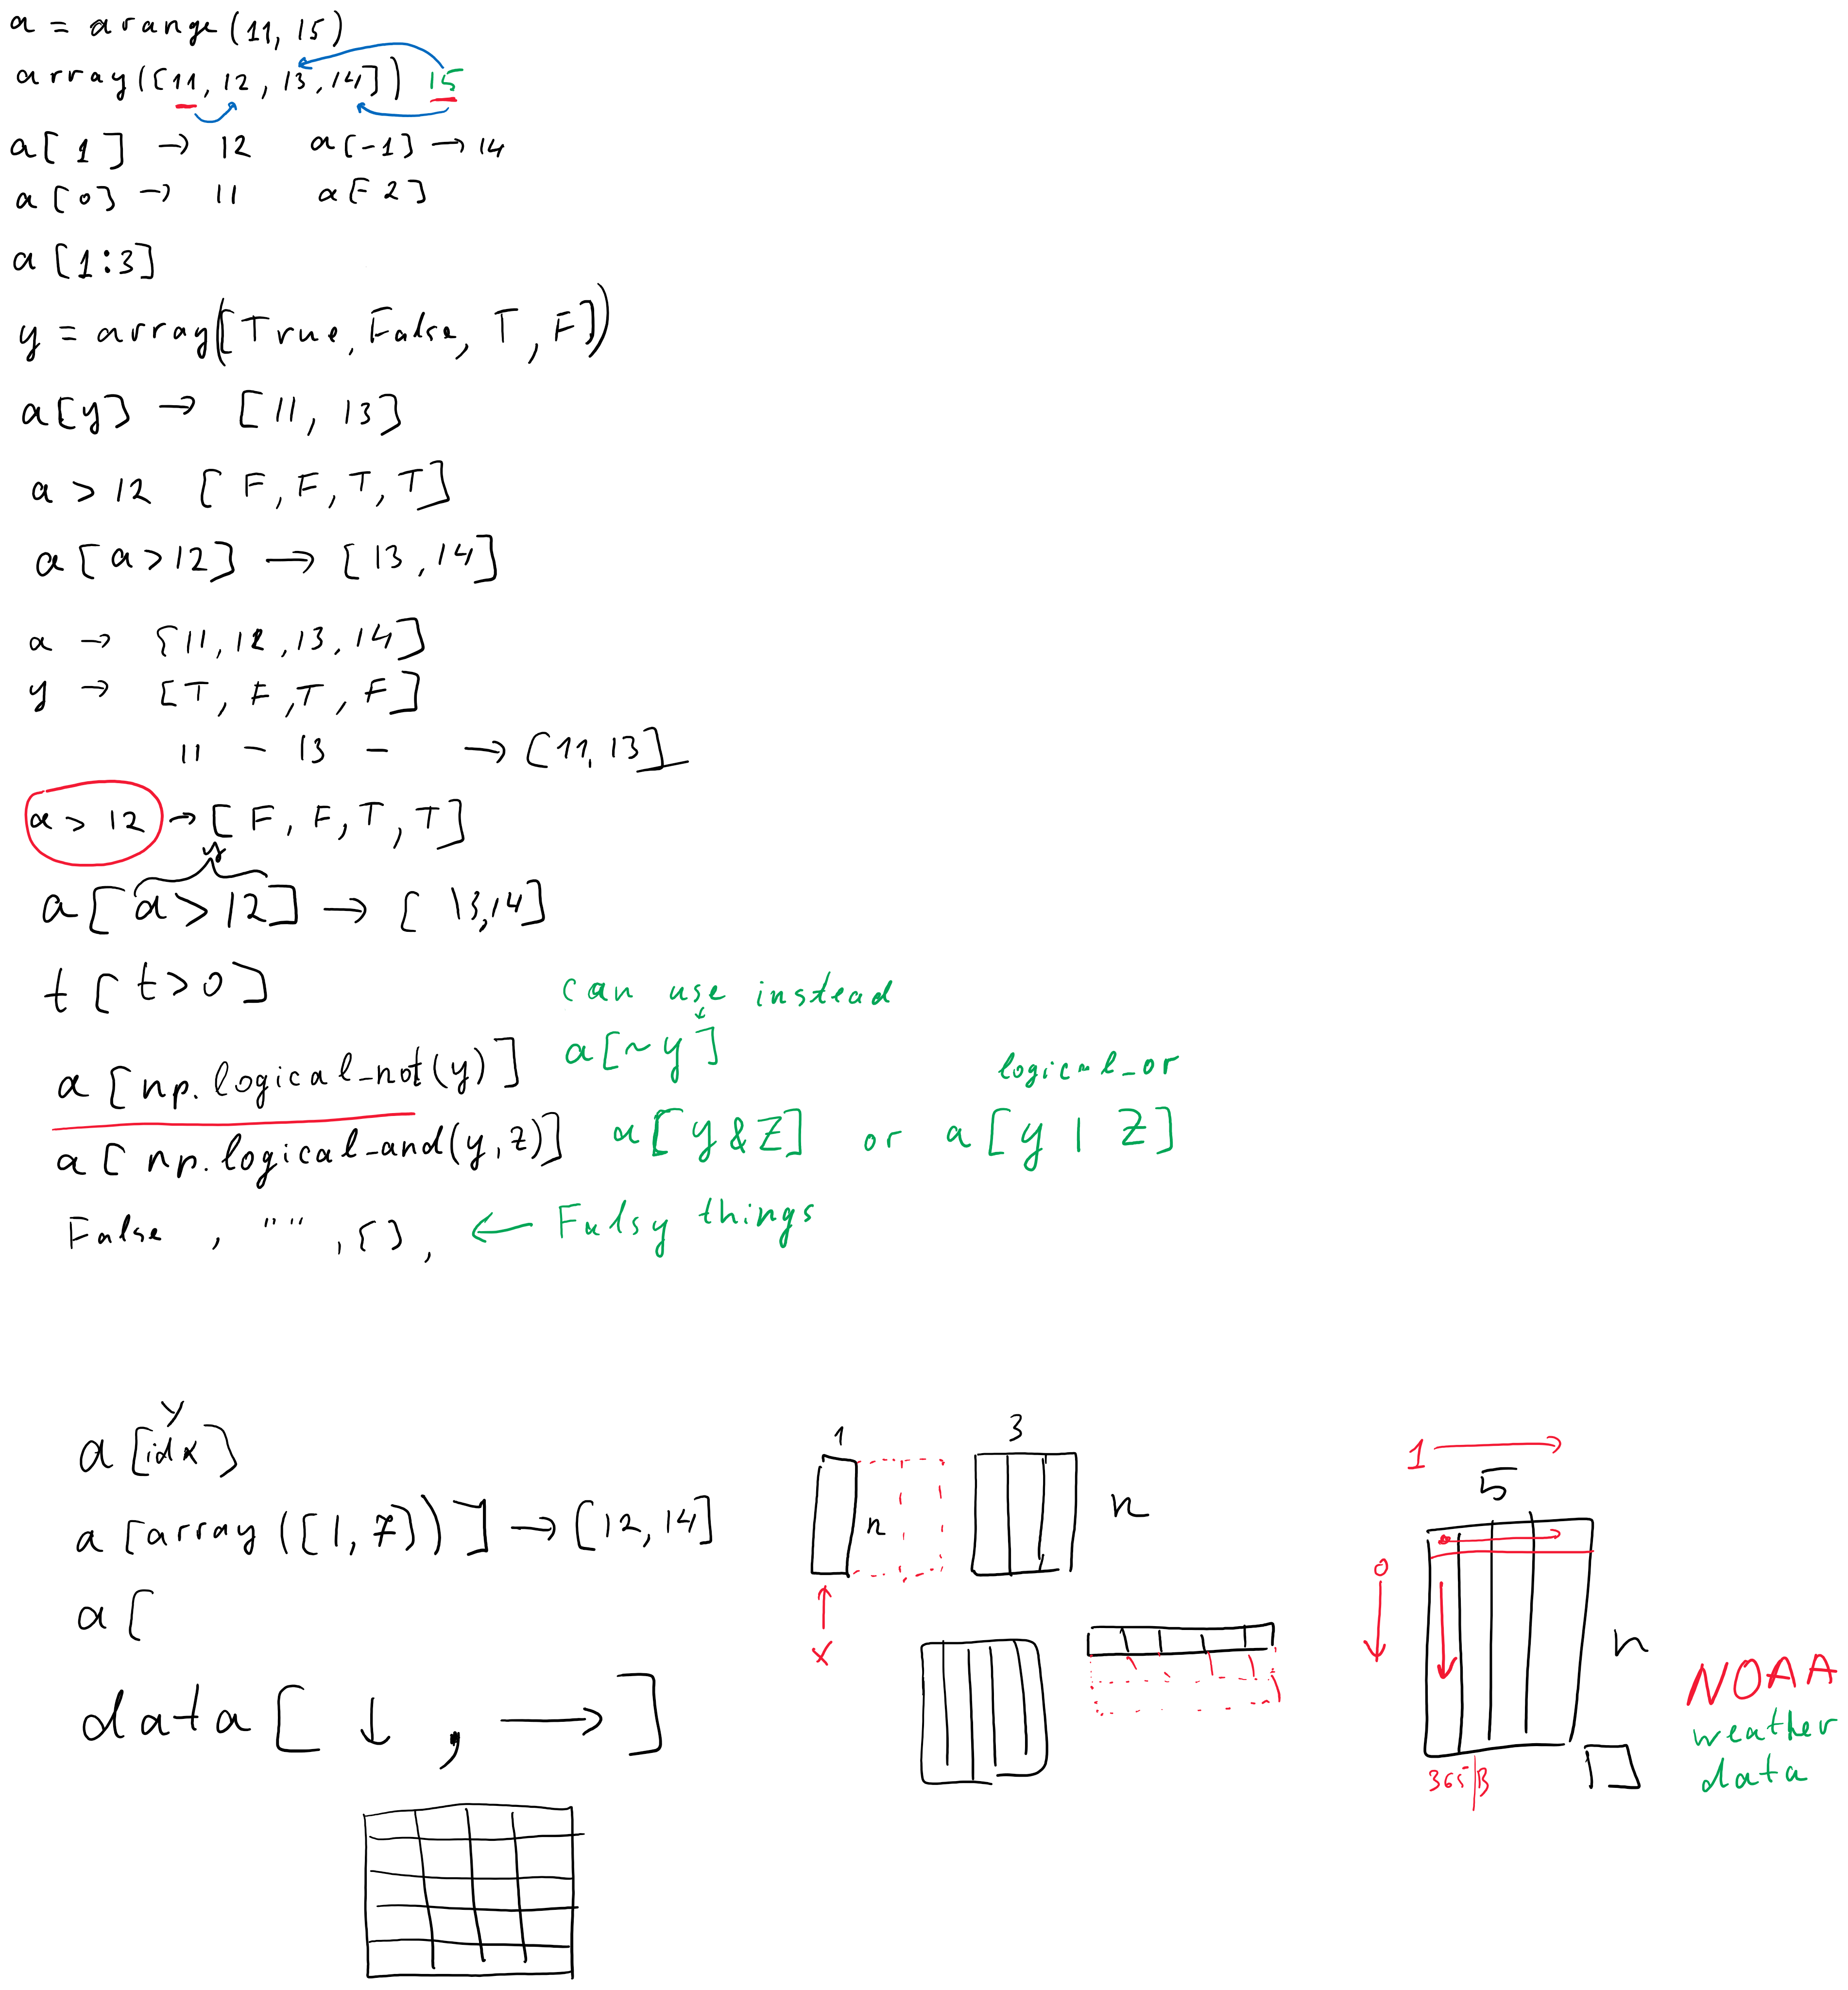 a = arange(11, 15)
array([11, 12, 13, 14]) 15
a[1] → 12 a[-1] → 14
a[0] → 11 a[-2]
a[1:3]
y = array([True, False, T, F])
a[y] → [11, 13]
a > 12 [F, F, T, T]
a[a>12] → [13, 14]
a → [11, 12, 13, 14]
y → [T, F, T, F]
11 - 13 - → [11, 13]
a > 12 → [F, F, T, T]
y
a[a>12] → [13,14]
t[t>0]
can use instead
a[np.logical_not(y)] a[~y]
logical_or
a[np.logical_and(y, z)] a[y & z] or a[y | z]
False, "", [], ← Falsy things
y
a[idx]
a[array([1, 7])] → [12, 14]
a[
data[↓, →]
1
n
x
3
n
1 →
5
0
n
365 | B
NOAA
weather
data